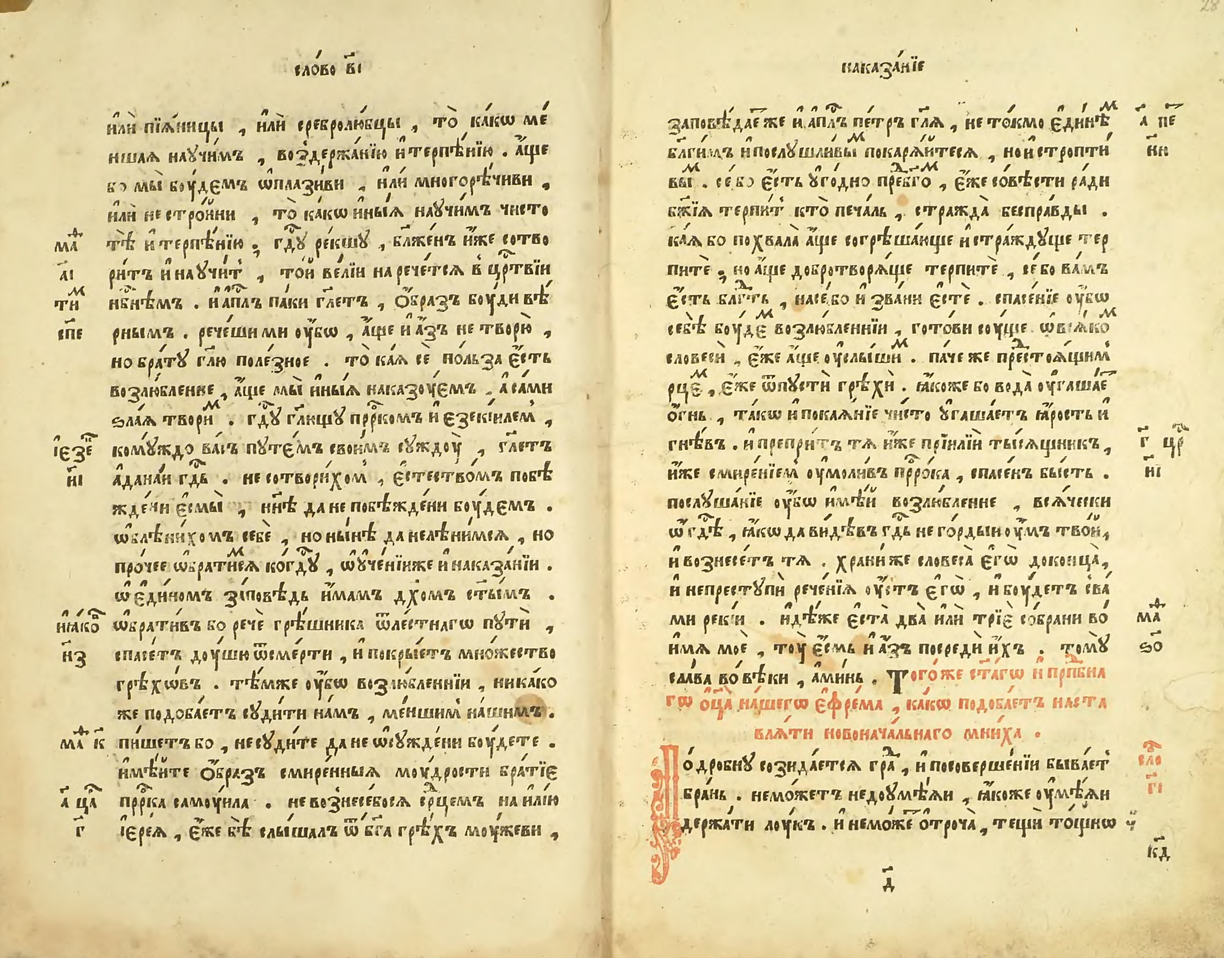 сло́во в҃і
и҆лѝ пїѧ́ницы , и҆лѝ сребролю́бцы , то̀ ка́кѡ ме́
ншаѧ наꙋчи́мъ , воздержа́нїю и҆ терпѣ́нїю . а҆́ще
бо мы̀ бꙋ́демъ ѡ҆плазиви , и҆лѝ многорѣ́чиви ,
и҆лѝ нестро́йни , то̀ ка́кѡ и҆ны́ѧ наꙋчи́мъ чисто
мѳ҃ тѣ̀ и҆ терпѣ́нїю . гдⷭ҇ꙋ ре́кшꙋ , бл҃же́нъ и҆́же сотво
а҃і ри́тъ и҆ наꙋчи́тъ , то́й ве́лїи нарече́тсѧ в црⷭ҇твїи
ти нбⷭ҇нѣмъ . и҆ а҆пⷭ҇лъ па́ки гл҃етъ , ѻ҆́бразъ бꙋ́ди вѣ́
с҃пе рнымъ . рече́ши ми ᲂу҆́бѡ , а҆́ще и҆ а҆́зъ не творю̀ ,
но бра́тꙋ гл҃ю поле́зное . то̀ ка́ѧ сѐ по́льза є҆́сть
возлю́бленне , а҆́ще мы̀ и҆ны́ѧ наказꙋ́емъ , а҆ са́ми
ѕла́ѧ твори́мъ . гдⷭ҇ꙋ гл҃ющꙋ прⷪ҇ркомъ и҆ є҆зекі́илемъ ,
і҆єзе комꙋ́ждо ва́съ пꙋте́мъ свои́мъ сꙋждꙋ̀ , гл҃етъ
н҃і а҆дана́и гдⷭ҇ь . не сотвори́хом , є҆стество́мъ побѣ
жде́ни є҆смы̀ , нн҃ѣ да не побѣжде́ни бꙋ́демъ .
ѡ҆блѣни́хомъ себѐ , но ны́нѣ да не лѣни́мсѧ , но
про́чее ѡ҆брати́мсѧ ког҃дꙋ , ѡ҆ ᲂу҆че́нїи же и҆ наказа́нїи .
ѡ҆ є҆ди́номъ за́повѣдь и҆́мамъ дх҃омъ ст҃ы́мъ .
и҆ꙗ҆ко ѡ҆брати́въ бо речѐ грѣ́шника ѿ ле́стнагѡ пꙋтѝ ,
н҃з спасе́тъ дꙋ́шꙋ ѿ сме́рти , и҆ покры́етъ мно́жество
грѣхѡ́въ . тѣ́мже ᲂу҆́бѡ возлю́бленнїи , ника́ко
же подоба́етъ сꙋди́ти на́мъ , ме́ншимъ на́шимъ .
мѳ҃ к пи́шетъ бо , не сꙋди́те да не ѡ҆сꙋжде́ни бꙋ́дете .
и҆мѣ́йте ѻ҆́бразъ смире́нныѧ мꙋ́дрости бра́тїе
а҃ цр҃ прⷪ҇рка самꙋ́ила . не вознесе́ бо сѧ се́рцемъ на и҆лі́ю
г҃ і҆ере́ѧ , є҆́же бѣ̀ слы́шалъ ѿ бг҃а грѣ́хъ мꙋ́жеви ,
наказа́нїе
28
заповѣ́даетъ же и҆ а҆пⷭ҇лъ пе́тръ гл҃ѧ , не то́кмо є҆ди́нѣмъ а҃ пе
бл҃ги́мъ и҆ послꙋшли́вымъ покарѧ́йтесѧ , но и҆ стропти н҃и
вымъ . се́ бо є҆́сть ᲂу҆го́дно пред̾ бг҃омъ , є҆́же со́вѣсти ра́ди
бж҃їѧ те́рпитъ кто̀ печа́ль , стражда̀ бесправды .
ка́ѧ бо похвала̀ а҆́ще согрѣша́юще и҆ стра́ждꙋще тер
питѐ , но а҆́ще добротворѧ́ще терпитѐ , се́ бо ва́мъ
є҆́сть блгⷣть , на се́ бо и҆ зва́ни є҆стѐ . спасе́нїе ᲂу҆́бѡ
себѣ̀ бꙋ́демъ возлю́бленнїи , гото́ви сꙋ́ще ѡ҆ всѧ́комъ
словесѝ , є҆́же а҆́ще ᲂу҆слы́шимъ . па́че же предстоѧ́щимъ
рце́мъ , є҆́же ѿпꙋстѝ грѣхѝ . ꙗ҆́коже бо вода̀ ᲂу҆гаша́етъ
ѻ҆́гнь , та́кѡ и҆ покаѧ́нїе чи́сто ᲂу҆гаша́етъ ꙗ҆́рость и҆
гнѣ́въ . и҆ препри́тъ тѧ и҆́же при і҆лїи́ ты́сѧщникъ , г҃ цр҃
и҆́же смире́нїем ᲂу҆моли́въ прⷪ҇ро́ка , спасе́нъ бы́сть . н҃і
послꙋша́нїе ᲂу҆́бѡ и҆мѣ́й возлю́бленне , всѧ́чески
ѡ҆ гдⷭ҇ѣ , ꙗ҆́кѡ да ви́дѣвъ гдⷭ҇ь не го́рдыи ᲂу҆́мъ тво́й ,
и҆ вознесе́тъ тѧ . храни́ же словеса̀ є҆гѡ̀ до конца̀ ,
и҆ не престꙋпѝ рече́нїѧ ᲂу҆́стъ є҆гѡ̀ , и҆ бꙋ́детъ с ва
ми реки́и . и҆дѣ́же є҆ста̀ два̀ и҆лѝ трїѐ со́брани во мѳ҃
и҆́мѧ моѐ , тꙋ̀ є҆́смь и҆ а҆́зъ посреди́ и҆́хъ . томꙋ̀ ѕ҃о
сла́ва во вѣ́ки , а҆ми́нь . Того́же ст҃а́гѡ и҆ прпⷣбна
гѡ ѻ҆ц҃а̀ на́шегѡ є҆фре́ма , ка́кѡ подоба́етъ наста
влѧ́ти новонача́льнаго мни́ха .
Подро́бнꙋ созида́етсѧ гра́дъ , и҆ по соверше́нїи быва́етъ сло
бра́нь . не мо́жетъ недоꙋмѣ́ѧи , ꙗ҆́коже ᲂу҆мѣ́ѧи г҃і
держа́ти лꙋ́къ . и҆ не мо́жетъ ѻ҆троча̀ , тещѝ то́щнѡ
к҃д
д҃